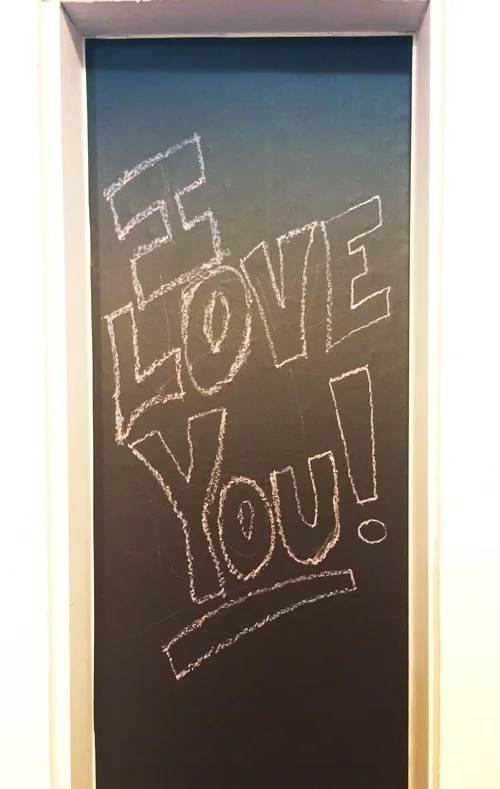 I
LOVE
YOU!